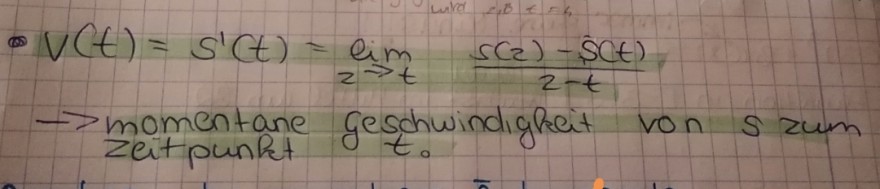 • v(t) = s'(t) = lim z→t s(z) - s(t) / z - t
→ momentane geschwindigkeit von s zum
zeitpunkt t.